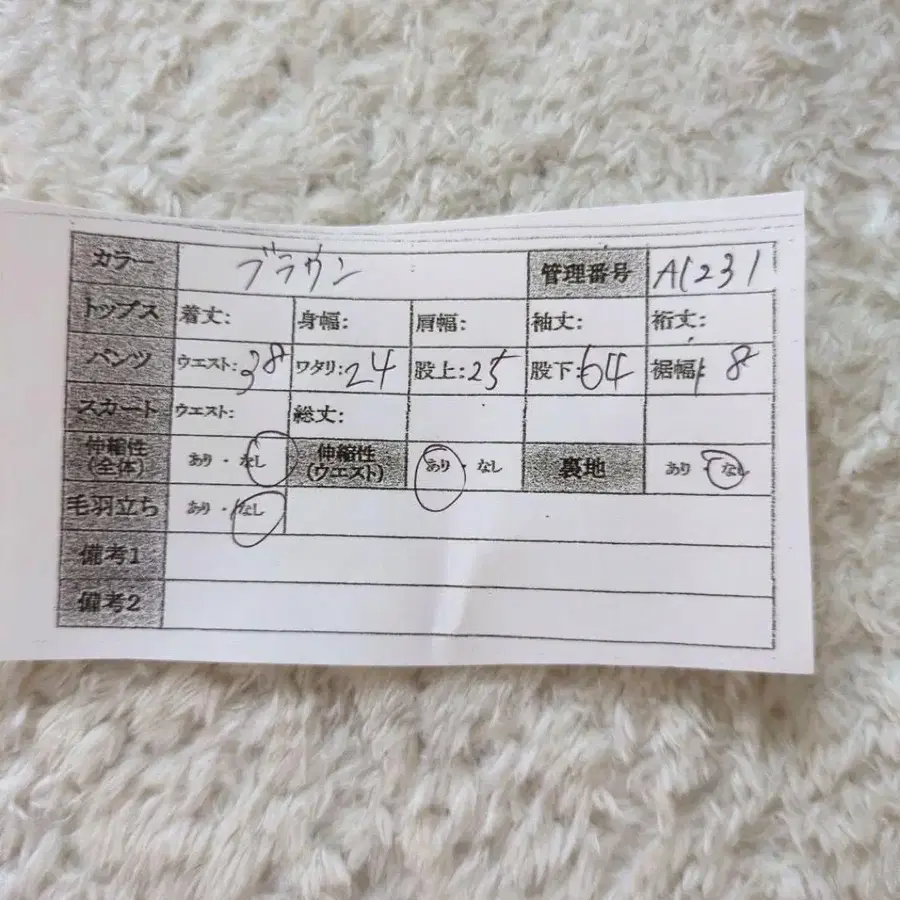 カラー ブラウン 管理番号 A1231
トップス 着丈: 身幅: 肩幅: 袖丈: 裄丈:
パンツ ウエスト:38 ワタリ:24 股上:25 股下:64 裾幅:18
スカート ウエスト: 総丈:
伸縮性(全体) あり・なし 伸縮性(ウエスト) あり・なし 裏地 あり・なし
毛羽立ち あり・なし
備考1
備考2